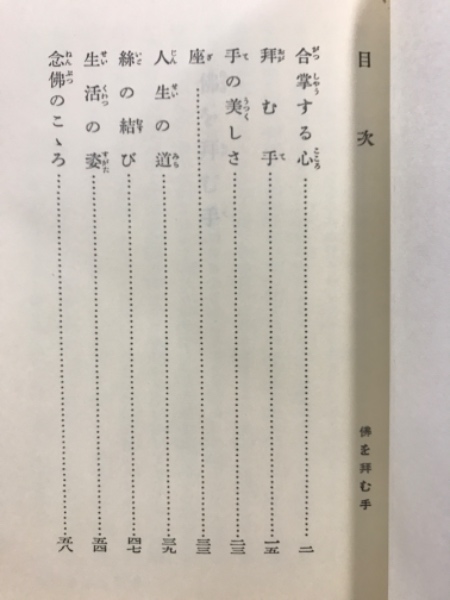 目次
合掌する心 二
拝む手 一五
手の美しさ 二三
座 三三
人生の道 三九
絲の結び 四七
生活の姿 五四
念佛のこゝろ 五八
佛を拝む手